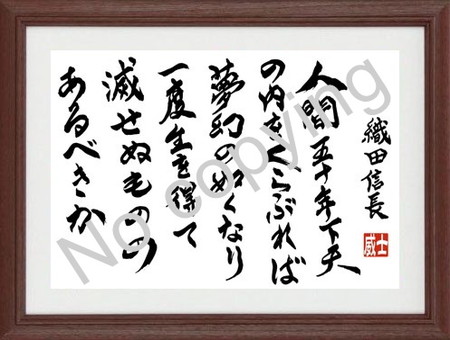 織田信長
人間五十年下天
の内をくらぶれば
夢幻の如くなり
一度生を得て
滅せぬものの
あるべきか
威士
No copying